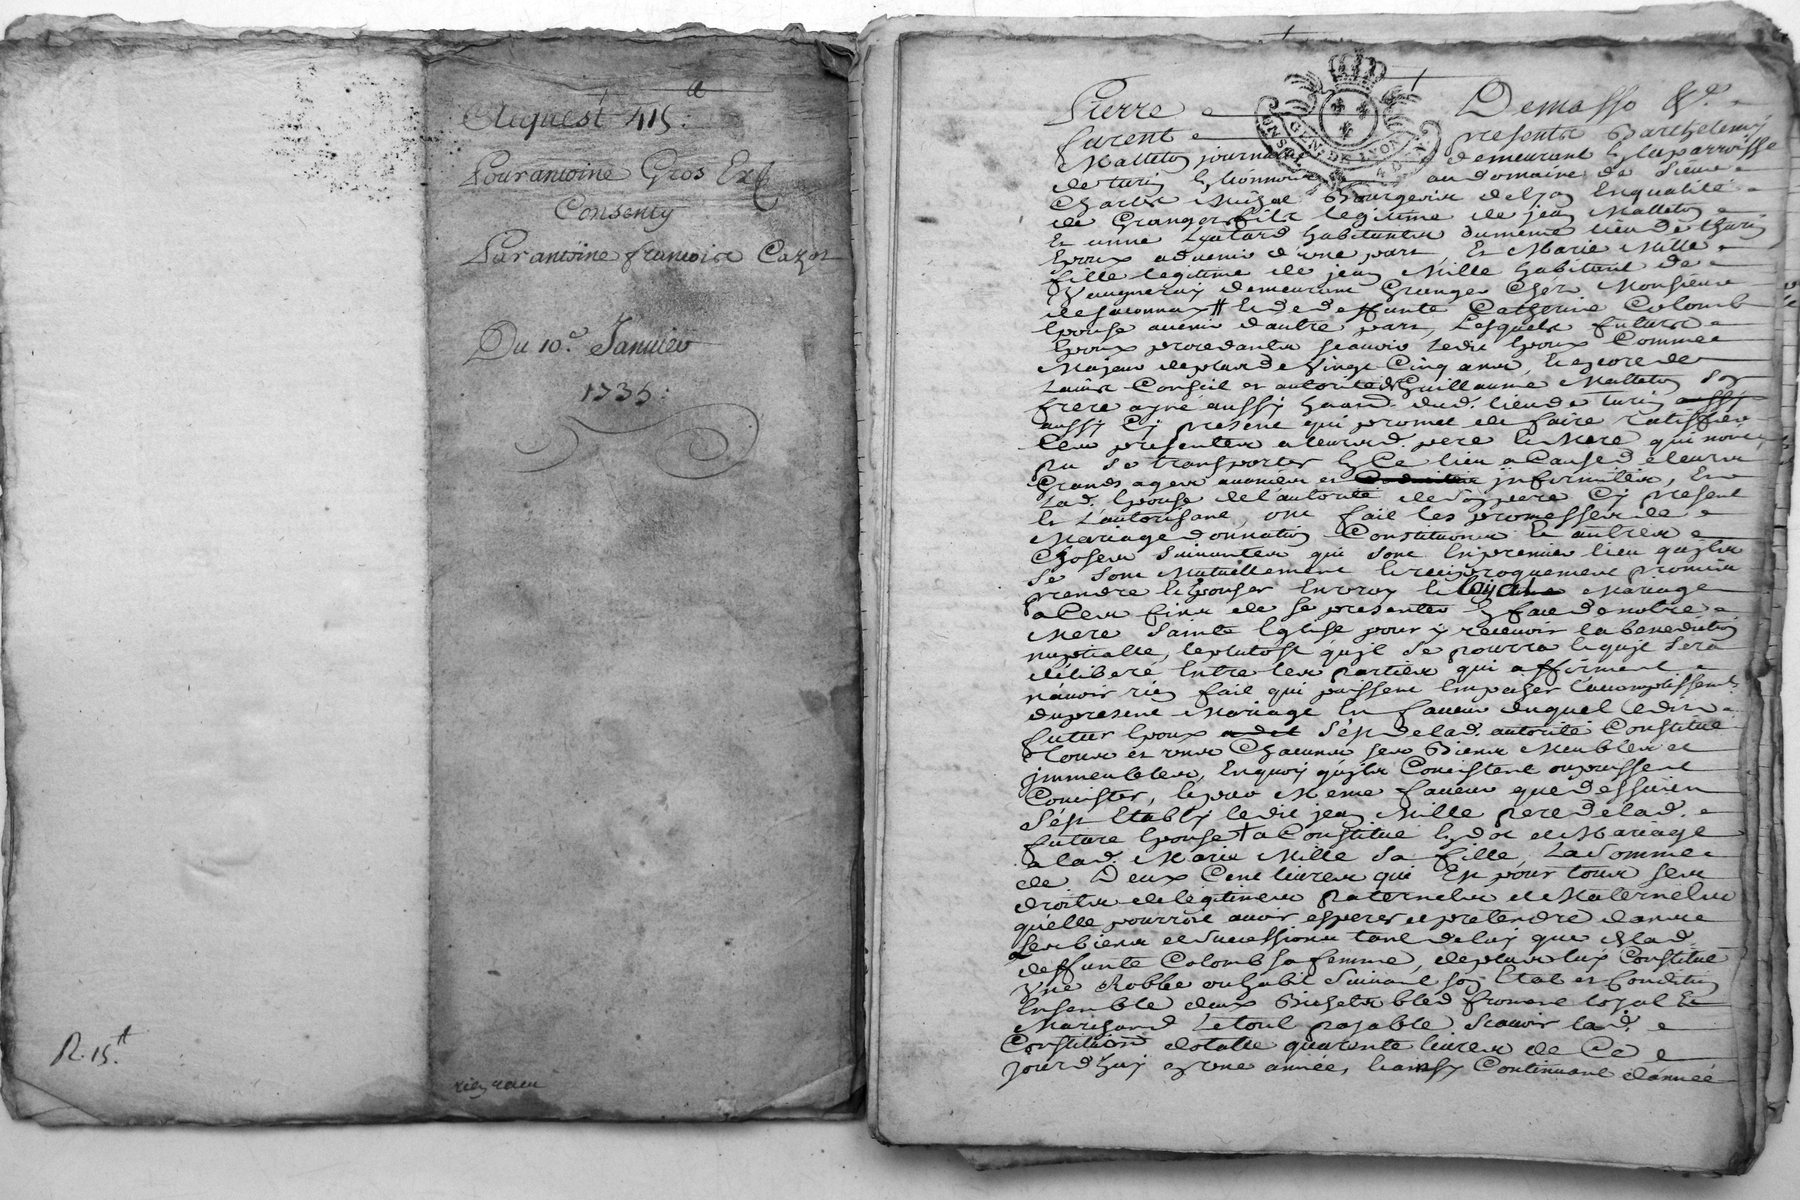 Acquest 415:
Pour antoine Gros
Consenty
Par antoine francois Cazot
Du 10e. Janvier
1735:
R. 15.tt
rien recu
GEN. DE LYON
Pierre Demasso &a.
furent presents Barthelemy
Matteton journalier demeurant en la parroisse
de turin en lionnois au domaine de Sieur
Charles Michal Bourgeois de Lyon En qualité
de Granger fils legitime de jean Matteton
Et anne habitants du meme lieu de thurin
Epoux advenir d'une part, Et Marie Mille
fille legitime de jean Mille habitant de
Vaugneray demeurant Granger chez Monsieur
de # Et de deffunte Catherine Colomb
Epouse avenir d'autre part, Lesquels futurs
Epoux procedants scavoir Ledit Epoux Comme
Majeur de plus de Vingt Cinq ans, Et encore de
Lavis Conseil et autorité de Guillaume Matteton Son
frere ayné aussy Grand. dud. lieu de turin aussy
aussy Cy present qui promet de faire ratiffier
Ces presentes a leursd. pere Et Mere qui nont
pu se transporter En Ce lieu a Cause de leurs
Grands ages avancés et infirmités, Et
Lad. Epouse de l'autorité de son pere Cy present
Et L'autorisant, ont fait les promesses de
Mariage donnation Constitutions Et autres
Choses Suivantes qui Sont En premier lieu quils
Se Sont Mutuellement Et reciproquement promis
prendre Et Epouser En vray Et loyal Mariage
a Ces fins de se presenter En face de notre
Mere Sainte Eglise pour y recevoir la benediction
nuptialle, le plutost quil Se pourra Et quil Sera
deliberé Entre les parties qui affirment
n'avoir rien fait qui puissent Empecher l'accomplissement
du present Mariage En faveur duquel Ledit
futur Epoux a dit S'est de lad. autorité Constitué
tous et uns Chacuns ses Biens Meubles et
jmmeubles, En quoy quils Concistent ou puissent
Concister, Et par Meme faveur que dessus en
S'est Etably ledit jean Mille pere de lad.
future Epouse + a Constitué En dot de Mariage
a lad. Marie Mille Sa fille, La Somme
de Deux Cent livres qui Est pour tous ses
droits de legitimes paternels et Maternels
qu'elle pourroit avoir esperer et pretendre dans
Les biens et Successions tant de luy que de lad.
deffunte Colomb sa femme, de plus luy Constitue
Une Robbe ou habit Suivant son Etat et Condition
Ensemble deux Bichets bled froment loyal Et
Marchand Le tout payable Scavoir lad.
Constitution dotalle quarante livres de Ce
jourd'huy en une année, Et ainsy Continuant d'année